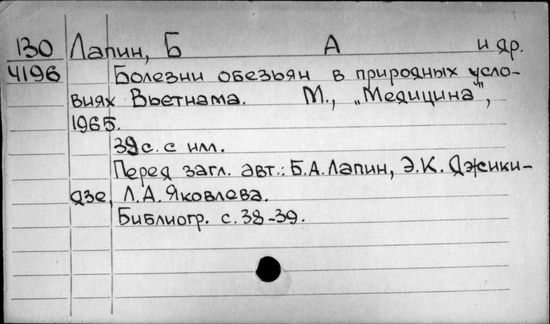 130 Лапин, Б А и др.
4196 Болезни обезьян в природных усло-
виях Вьетнама. М., „Медицина",
1965.
39 с. с илл.
Перед загл. авт.: Б.А. Лапин, Э.К. Джики-
дзе, Л.А. Яковлева.
Библиогр. с. 38-39.